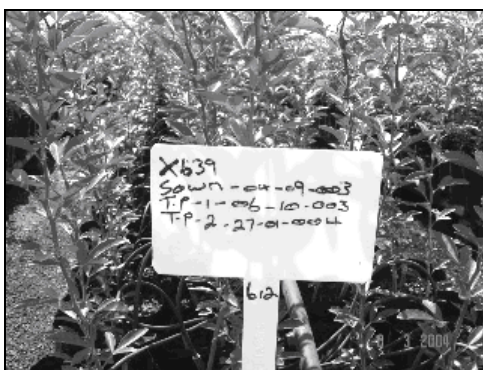 X639
Sown-04-09-003
T.P-1-06-10-003
T.P-2.27-01-004
612
3 2004